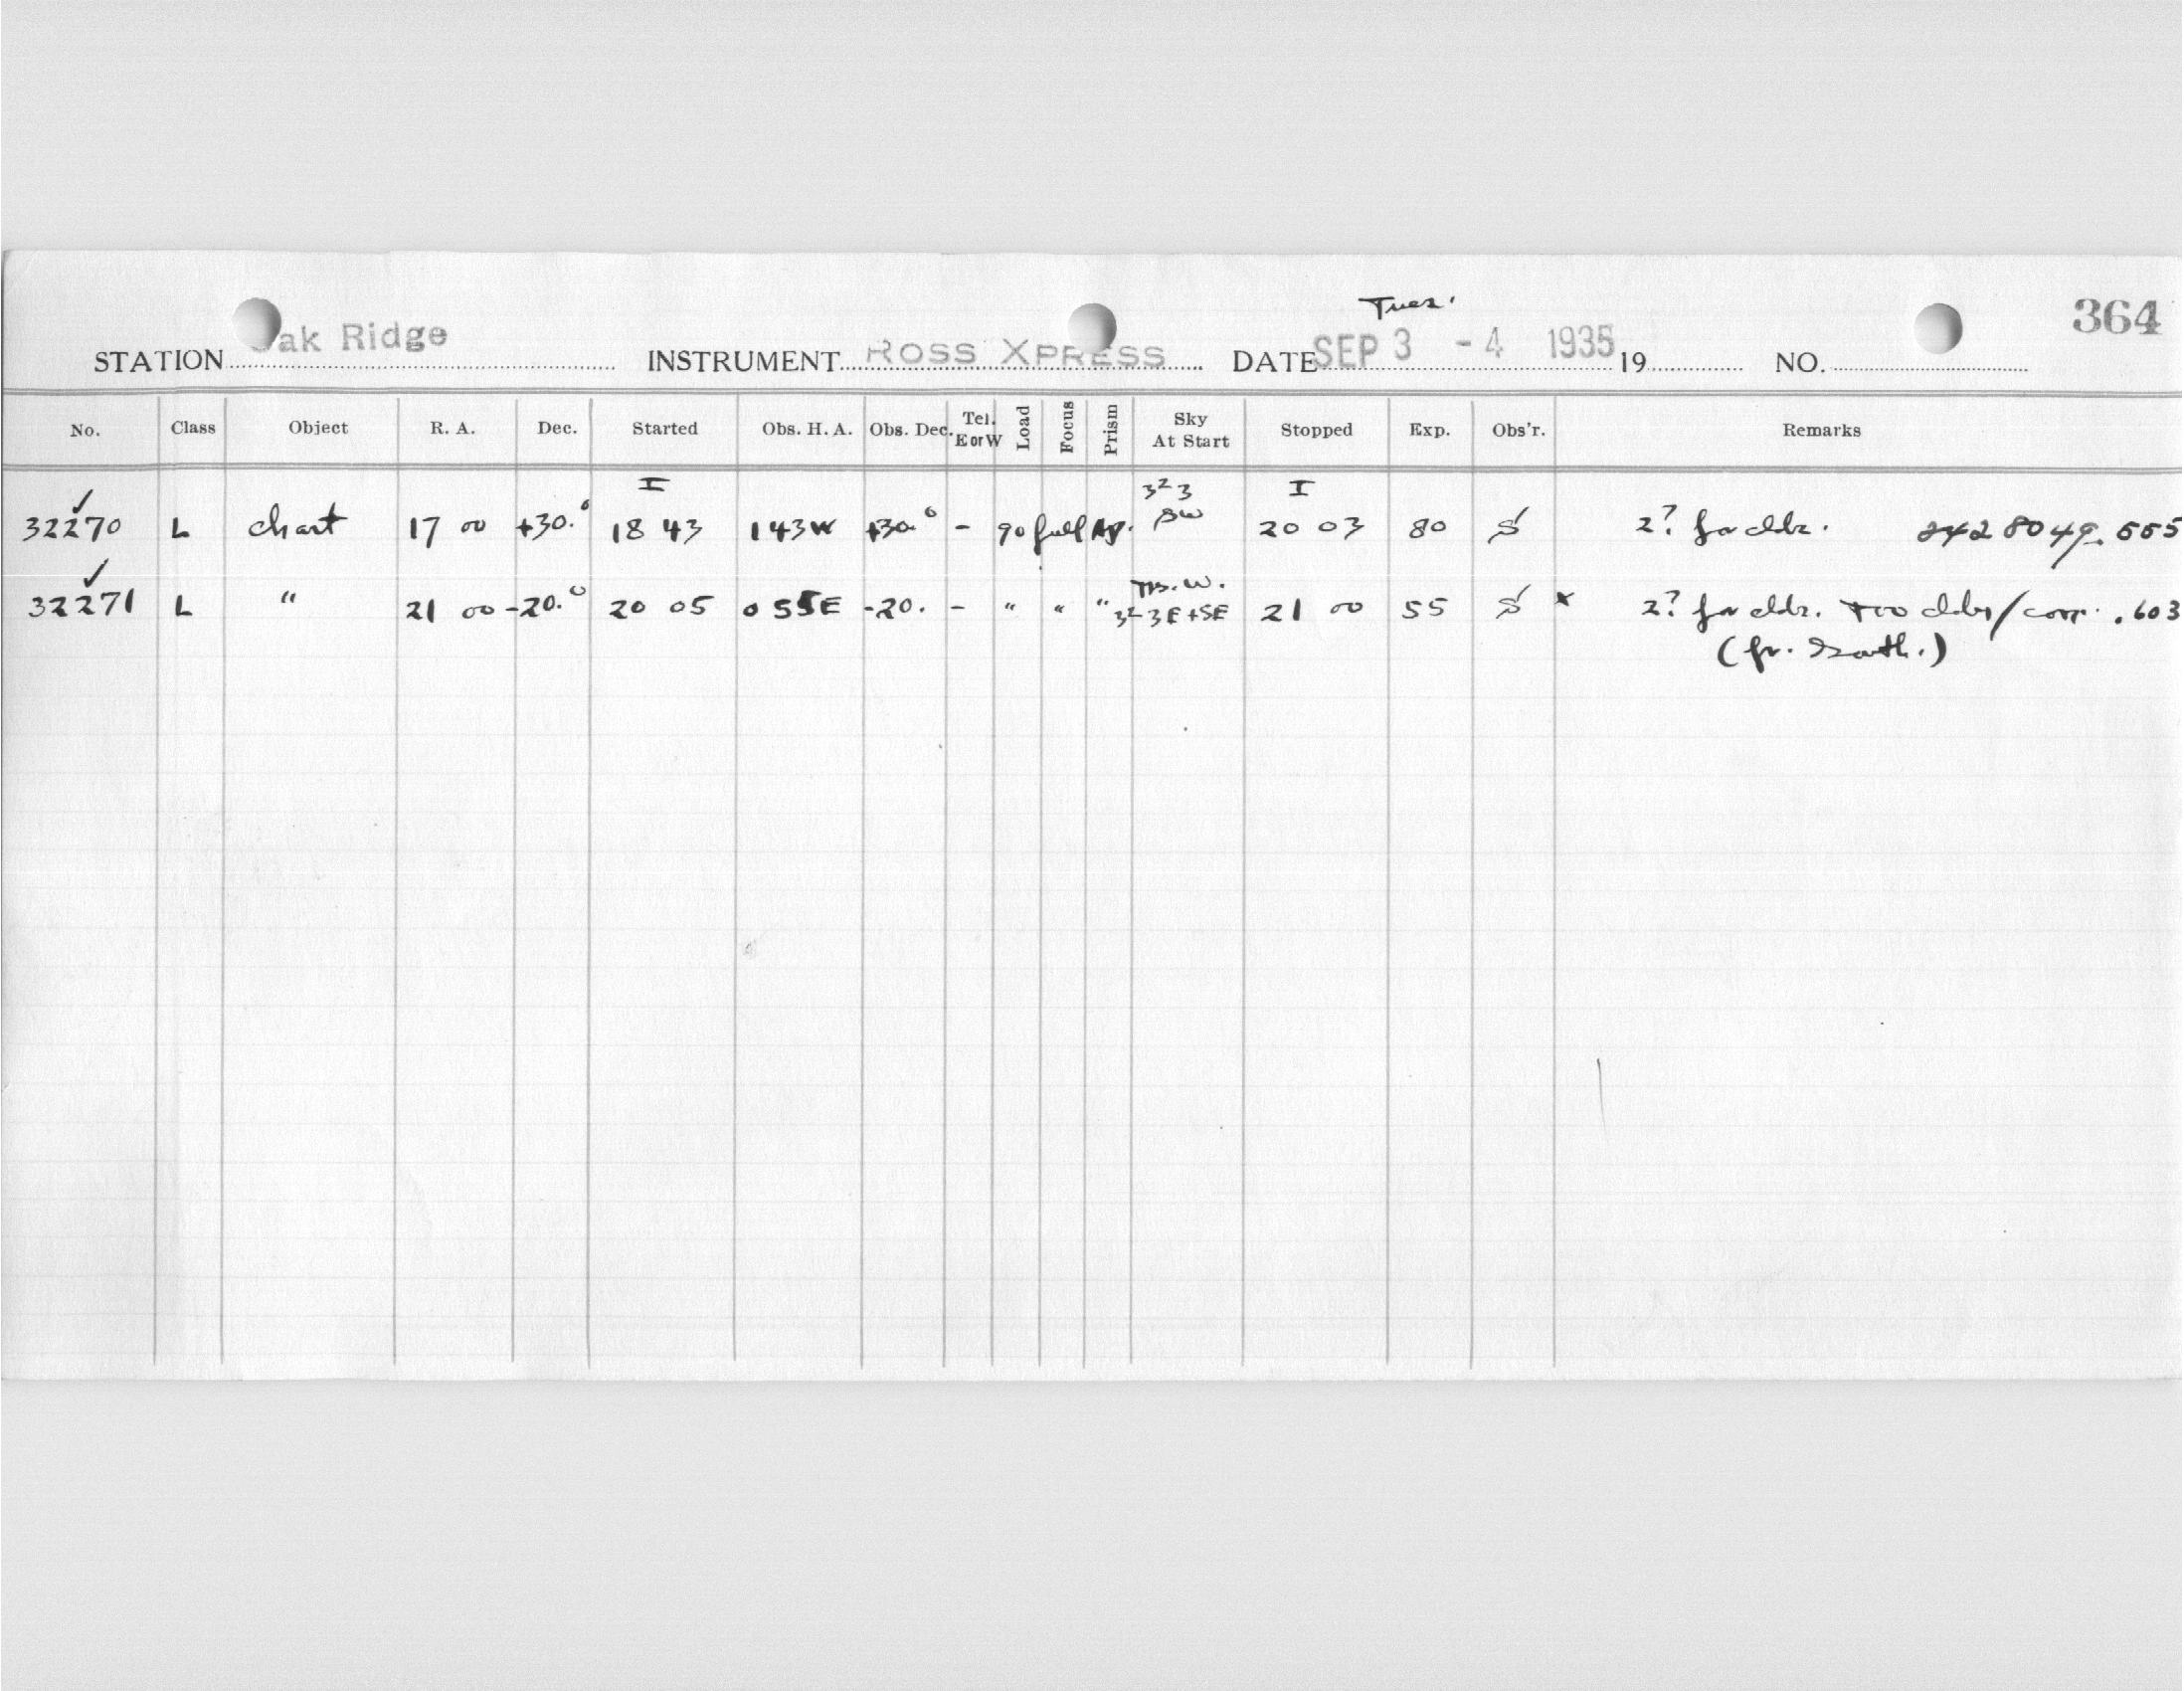 Tues.
364
STATION Oak Ridge INSTRUMENT ROSS XPRESS DATE SEP 3 - 4 1935 19 NO.
No. Class Object R. A. Dec. Started Obs. H. A. Obs. Dec. Tel. E or W Load Focus Prism Sky At Start Stopped Exp. Obs'r. Remarks
I I
32270 L chart 17 00 +30.° 18 43 1 43 W +30.° - 90 full Ap. 3²3 SW 20 03 80 S 2? for cldr. 242 8049.555
32271 L " 21 00 -20.° 20 05 0 55E -20. - " " " 3²-3E+SE 21 00 55 S x 2? for cldr. too cldy/corr. .603